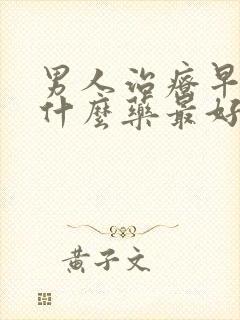 男人治療早
什麼藥最好
黃子文